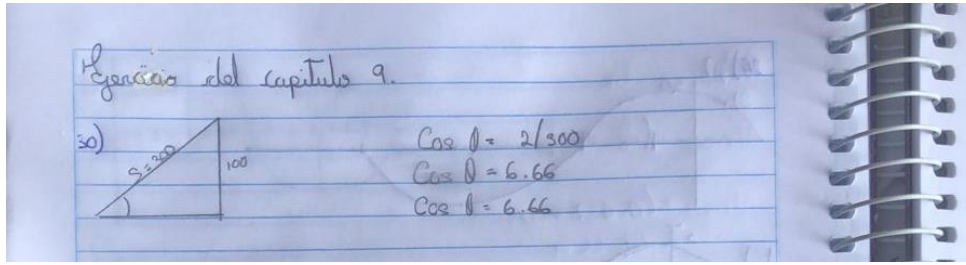 Ejercicio del capitulo 9.
30)
S=200
100
Cos θ = 2/300
Cos θ = 6.66
Cos θ = 6.66